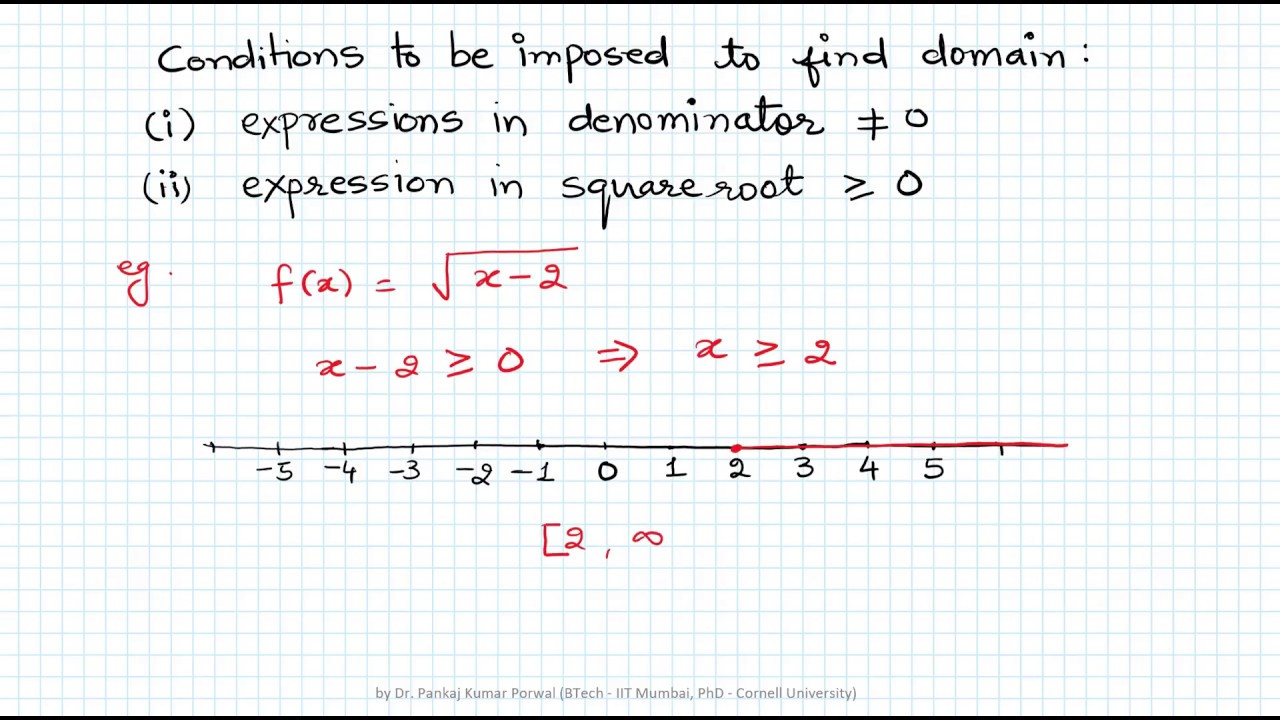 Conditions to be imposed to find domain :
(i) expressions in denominator ≠ 0
(ii) expression in squareroot ≥ 0
eg. f(x) = √x-2
x-2 ≥ 0 ⇒ x ≥ 2
-5 -4 -3 -2 -1 0 1 2 3 4 5
[2, ∞
by Dr. Pankaj Kumar Porwal (BTech - IIT Mumbai, PhD - Cornell University)